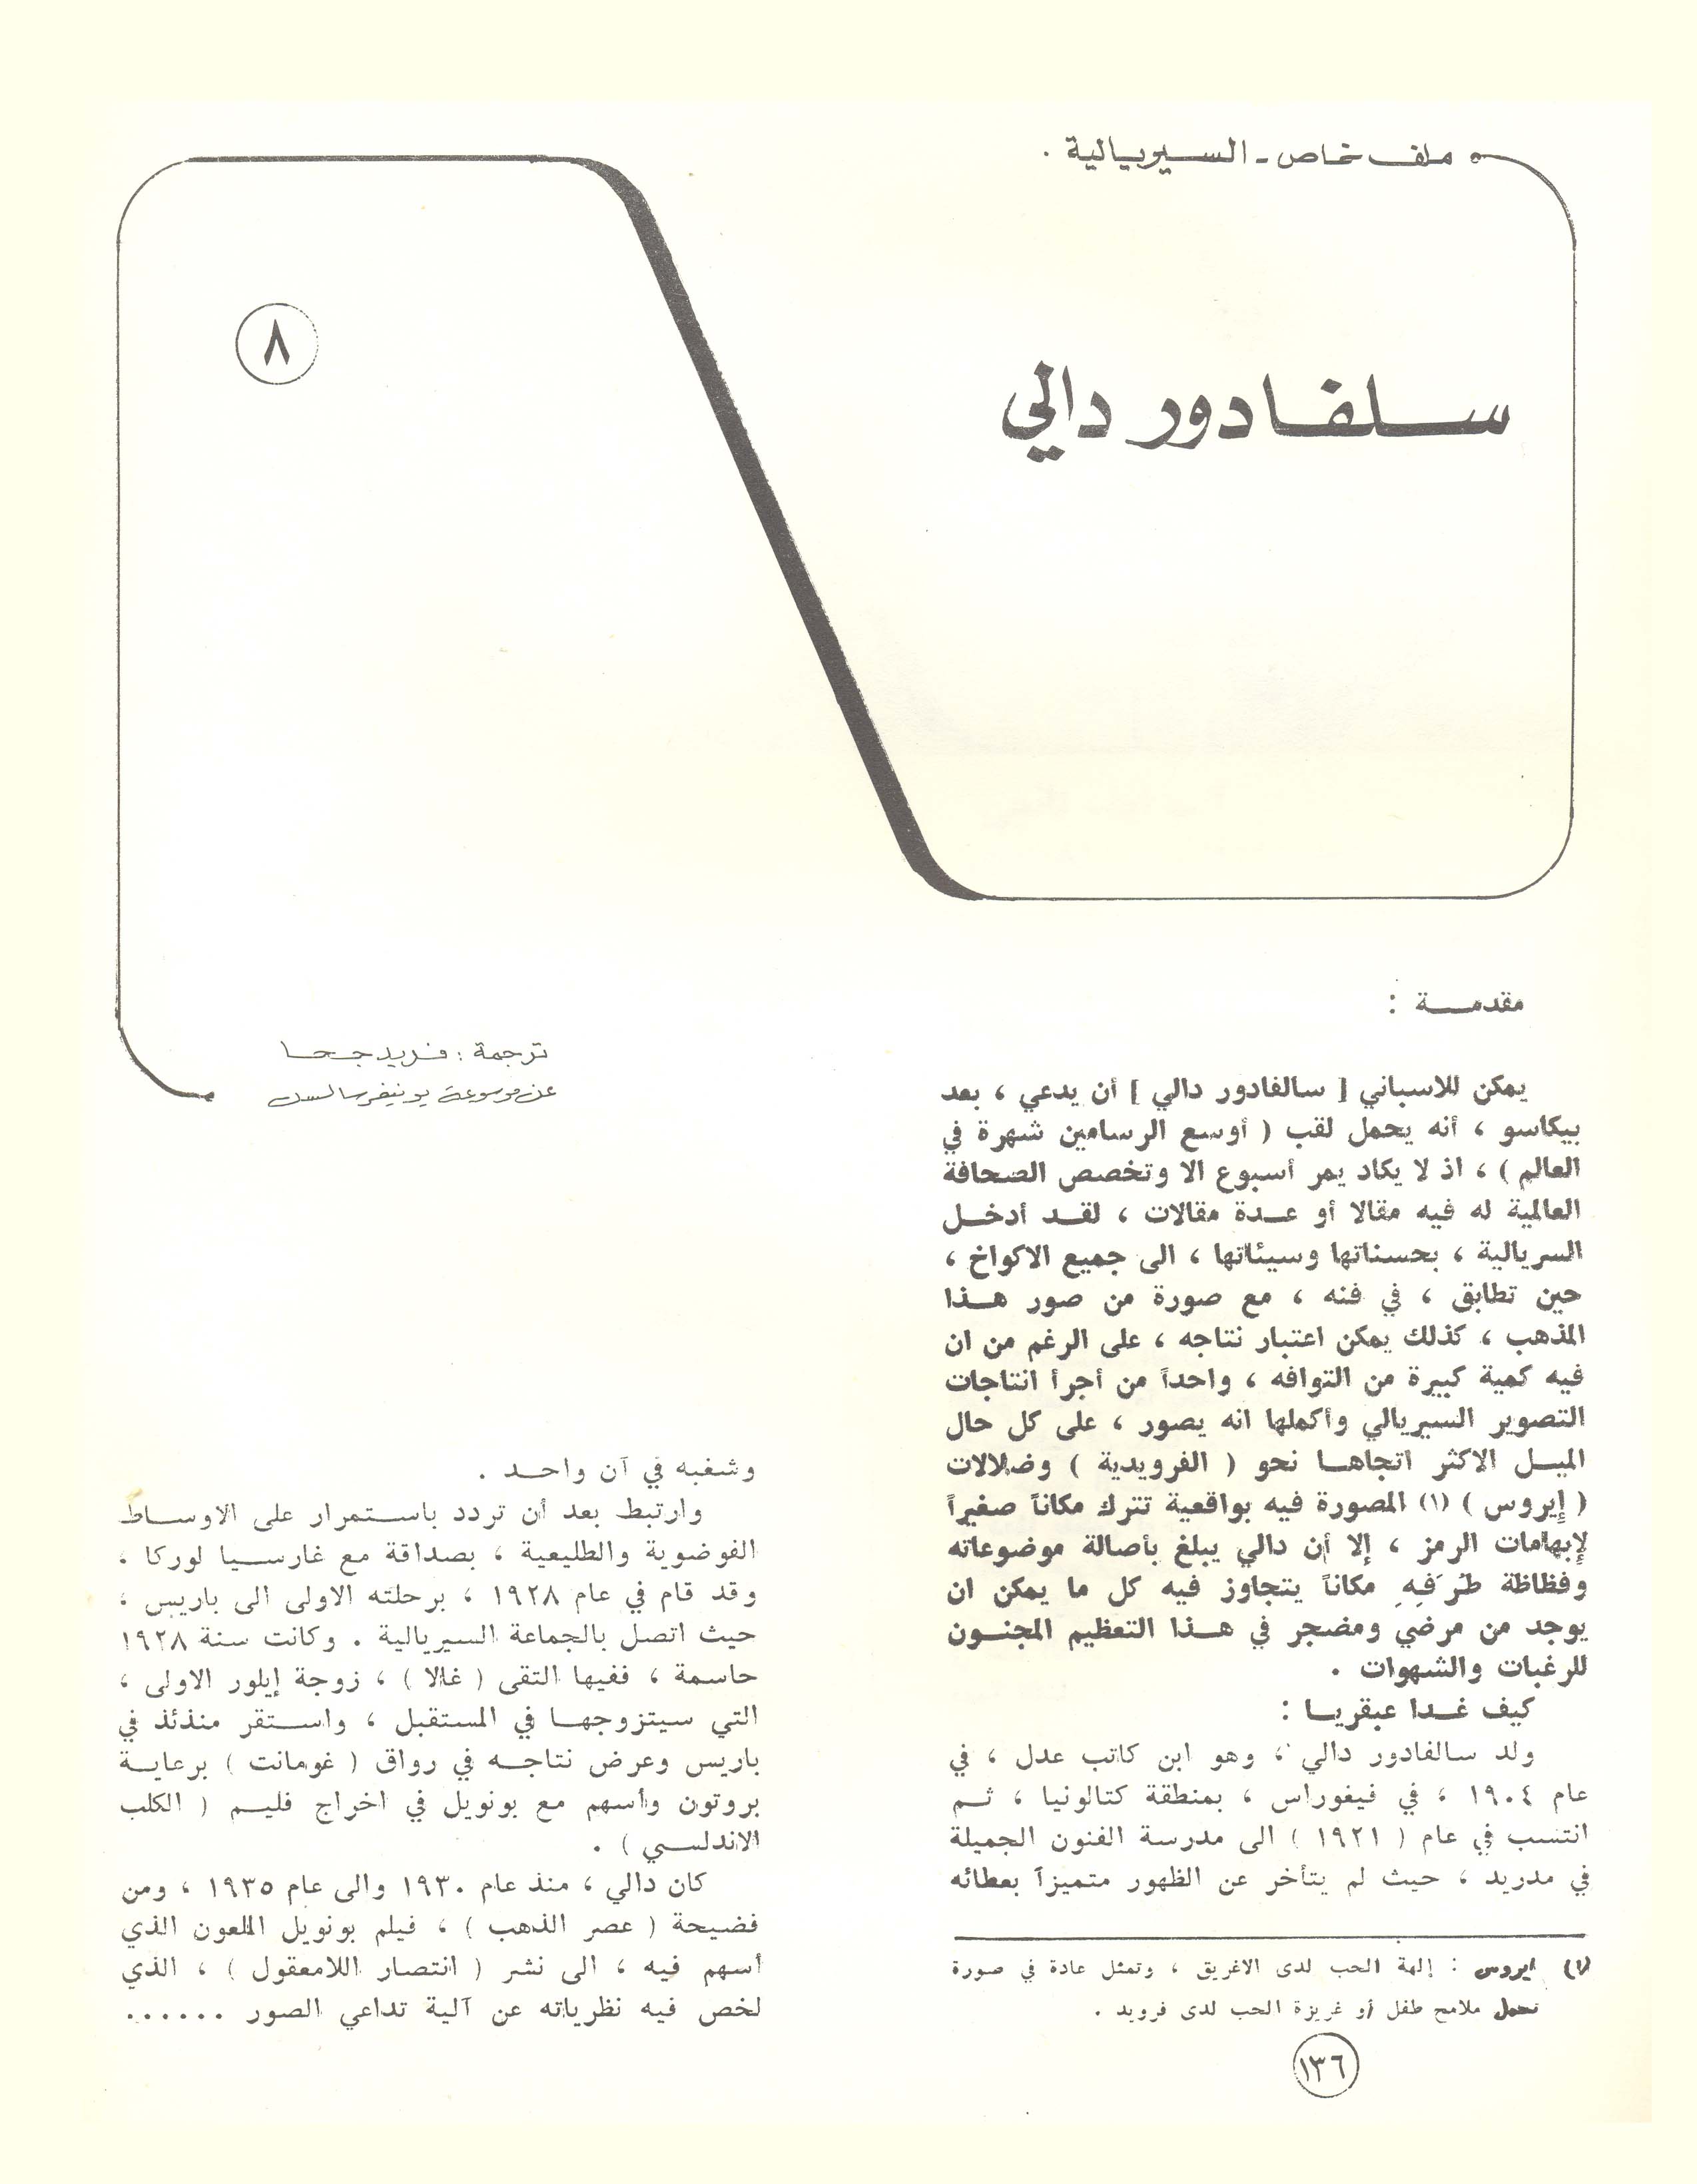 ملف خاص - السيريالية .
٨
سلفادور دالي
ترجمة : فريد جحا
عن موسوعة يونيفرسالس
مقدمة :
يمكن للاسباني [ سالفادور دالي ] أن يدعي ، بعد
بيكاسو ، أنه يحمل لقب ( أوسع الرسامين شهرة في
العالم ) ، اذ لا يكاد يمر أسبوع الا وتخصص الصحافة
العالمية له فيه مقالا أو عدة مقالات ، لقد أدخل
السريالية ، بحسناتها وسيئاتها ، الى جميع الاكواخ ،
حين تطابق ، في فنه ، مع صورة من صور هذا
المذهب ، كذلك يمكن اعتبار نتاجه ، على الرغم من ان
فيه كمية كبيرة من التوافه ، واحداً من أجرأ انتاجات
التصوير السيريالي وأكملها انه يصور ، على كل حال
الميل الاكثر اتجاها نحو ( الفرويدية ) وضلالات
( إيروس ) (١) المصورة فيه بواقعية تترك مكاناً صغيراً
لإبهامات الرمز ، إلا أن دالي يبلغ بأصالة موضوعاته
وفظاظة طرَفِهِ مكاناً يتجاوز فيه كل ما يمكن ان
يوجد من مرضي ومضجر في هذا التعظيم المجنون
للرغبات والشهوات .
كيف غدا عبقريا :
ولد سالفادور دالي ، وهو ابن كاتب عدل ، في
عام ١٩٠٤ ، في فيغوراس ، بمنطقة كتالونيا ، ثم
انتسب في عام ( ١٩٢١ ) الى مدرسة الفنون الجميلة
في مدريد ، حيث لم يتأخر عن الظهور متميزاً بعطائه
(١) ايروس : إلهة الحب لدى الاغريق ، وتمثل عادة في صورة
تحمل ملامح طفل أو غريزة الحب لدى فرويد .
وشغبه في آن واحد .
وارتبط بعد أن تردد باستمرار على الاوساط
الفوضوية والطليعية ، بصداقة مع غارسيا لوركا ،
وقد قام في عام ١٩٢٨ ، برحلته الاولى الى باريس ،
حيث اتصل بالجماعة السيريالية . وكانت سنة ١٩٢٨
حاسمة ، ففيها التقى ( غالا ) ، زوجة إيلور الاولى ،
التي سيتزوجها في المستقبل ، واستقر منذئذ في
باريس وعرض نتاجه في رواق ( غومانت ) برعاية
بروتون وأسهم مع بونويل في اخراج فليم ( الكلب
الاندلسي ) .
كان دالي ، منذ عام ١٩٣٠ والى عام ١٩٣٥ ، ومن
فضيحة ( عصر الذهب ) ، فيلم بونويل الملعون الذي
أسهم فيه ، الى نشر ( انتصار اللامعقول ) ، الذي
لخص فيه نظرياته عن آلية تداعي الصور ......
١٣٦